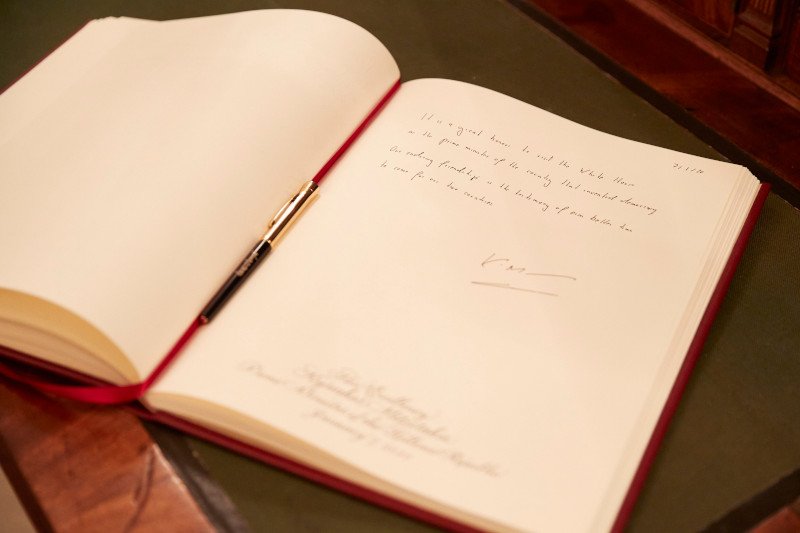 It is a great honor to visit the White House 7/1/20
as the prime minister of the country that invented democracy
Our enduring friendship is the testimony of even better time
to come for our two countries
K. M
His Excellency
Kyriakos Mitsotakis
Prime Minister of the Hellenic Republic
January 7, 2020